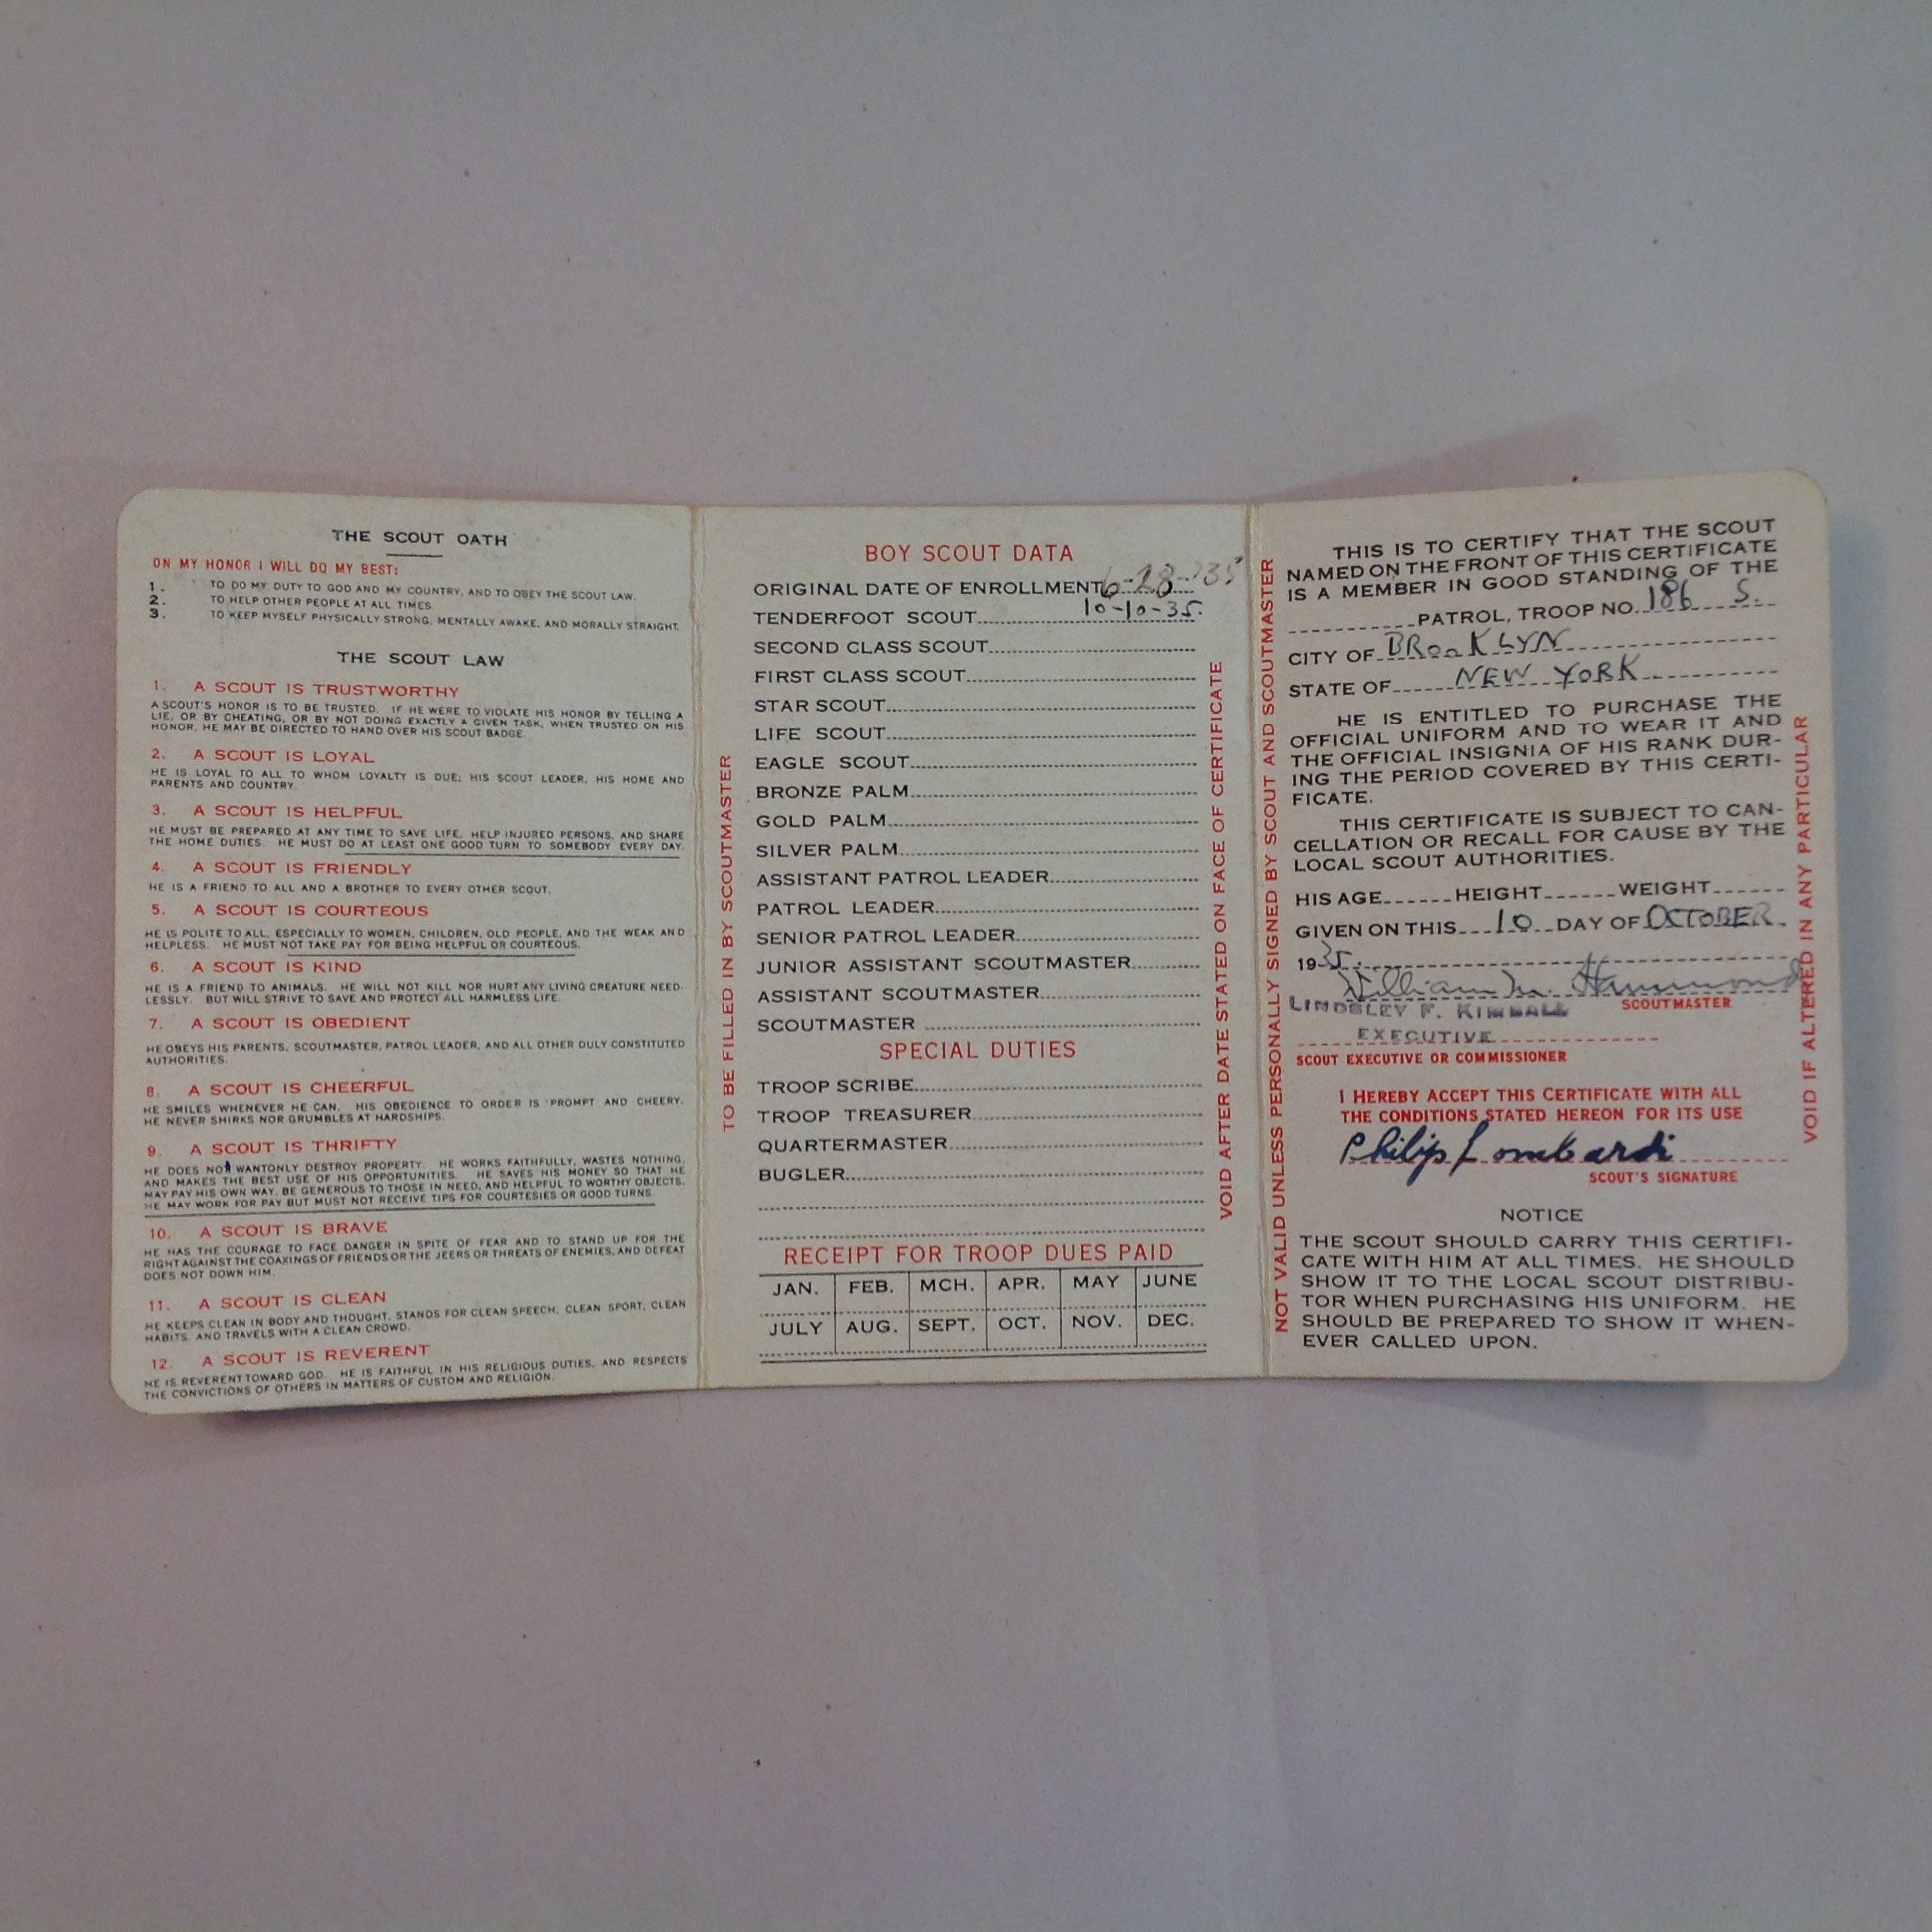 THE SCOUT OATH
ON MY HONOR I WILL DO MY BEST:
1. TO DO MY DUTY TO GOD AND MY COUNTRY, AND TO OBEY THE SCOUT LAW.
2. TO HELP OTHER PEOPLE AT ALL TIMES.
3. TO KEEP MYSELF PHYSICALLY STRONG, MENTALLY AWAKE, AND MORALLY STRAIGHT.
THE SCOUT LAW
1. A SCOUT IS TRUSTWORTHY
A SCOUT'S HONOR IS TO BE TRUSTED. IF HE WERE TO VIOLATE HIS HONOR BY TELLING A
LIE, OR BY CHEATING, OR BY NOT DOING EXACTLY A GIVEN TASK, WHEN TRUSTED ON HIS
HONOR, HE MAY BE DIRECTED TO HAND OVER HIS SCOUT BADGE.
2. A SCOUT IS LOYAL
HE IS LOYAL TO ALL TO WHOM LOYALTY IS DUE; HIS SCOUT LEADER, HIS HOME AND
PARENTS AND COUNTRY.
3. A SCOUT IS HELPFUL
HE MUST BE PREPARED AT ANY TIME TO SAVE LIFE, HELP INJURED PERSONS, AND SHARE
THE HOME DUTIES. HE MUST DO AT LEAST ONE GOOD TURN TO SOMEBODY EVERY DAY.
4. A SCOUT IS FRIENDLY
HE IS A FRIEND TO ALL AND A BROTHER TO EVERY OTHER SCOUT.
5. A SCOUT IS COURTEOUS
HE IS POLITE TO ALL, ESPECIALLY TO WOMEN, CHILDREN, OLD PEOPLE, AND THE WEAK AND
HELPLESS. HE MUST NOT TAKE PAY FOR BEING HELPFUL OR COURTEOUS.
6. A SCOUT IS KIND
HE IS A FRIEND TO ANIMALS. HE WILL NOT KILL NOR HURT ANY LIVING CREATURE NEED-
LESSLY. BUT WILL STRIVE TO SAVE AND PROTECT ALL HARMLESS LIFE.
7. A SCOUT IS OBEDIENT
HE OBEYS HIS PARENTS, SCOUTMASTER, PATROL LEADER, AND ALL OTHER DULY CONSTITUTED
AUTHORITIES.
8. A SCOUT IS CHEERFUL
HE SMILES WHENEVER HE CAN. HIS OBEDIENCE TO ORDER IS PROMPT AND CHEERY.
HE NEVER SHIRKS NOR GRUMBLES AT HARDSHIPS.
9. A SCOUT IS THRIFTY
HE DOES NOT WANTONLY DESTROY PROPERTY. HE WORKS FAITHFULLY, WASTES NOTHING,
AND MAKES THE BEST USE OF HIS OPPORTUNITIES. HE SAVES HIS MONEY SO THAT HE
MAY PAY HIS OWN WAY, BE GENEROUS TO THOSE IN NEED, AND HELPFUL TO WORTHY OBJECTS.
HE MAY WORK FOR PAY BUT MUST NOT RECEIVE TIPS FOR COURTESIES OR GOOD TURNS.
10. A SCOUT IS BRAVE
HE HAS THE COURAGE TO FACE DANGER IN SPITE OF FEAR AND TO STAND UP FOR THE
RIGHT AGAINST THE COAXINGS OF FRIENDS OR THE JEERS OR THREATS OF ENEMIES, AND DEFEAT
DOES NOT DOWN HIM.
11. A SCOUT IS CLEAN
HE KEEPS CLEAN IN BODY AND THOUGHT, STANDS FOR CLEAN SPEECH, CLEAN SPORT, CLEAN
HABITS, AND TRAVELS WITH A CLEAN CROWD.
12. A SCOUT IS REVERENT
HE IS REVERENT TOWARD GOD. HE IS FAITHFUL IN HIS RELIGIOUS DUTIES, AND RESPECTS
THE CONVICTIONS OF OTHERS IN MATTERS OF CUSTOM AND RELIGION.
TO BE FILLED IN BY SCOUTMASTER
BOY SCOUT DATA
ORIGINAL DATE OF ENROLLMENT 6-28-35
TENDERFOOT SCOUT 10-10-35.
SECOND CLASS SCOUT
FIRST CLASS SCOUT
STAR SCOUT
LIFE SCOUT
EAGLE SCOUT
BRONZE PALM
GOLD PALM
SILVER PALM
ASSISTANT PATROL LEADER
PATROL LEADER
SENIOR PATROL LEADER
JUNIOR ASSISTANT SCOUTMASTER
ASSISTANT SCOUTMASTER
SCOUTMASTER
SPECIAL DUTIES
TROOP SCRIBE
TROOP TREASURER
QUARTERMASTER
BUGLER
RECEIPT FOR TROOP DUES PAID
JAN. FEB. MCH. APR. MAY JUNE
JULY AUG. SEPT. OCT. NOV. DEC.
VOID AFTER DATE STATED ON FACE OF CERTIFICATE
NOT VALID UNLESS PERSONALLY SIGNED BY SCOUT AND SCOUTMASTER
THIS IS TO CERTIFY THAT THE SCOUT
NAMED ON THE FRONT OF THIS CERTIFICATE
IS A MEMBER IN GOOD STANDING OF THE
PATROL, TROOP NO. 186 S.
CITY OF BROOKLYN
STATE OF NEW YORK
HE IS ENTITLED TO PURCHASE THE
OFFICIAL UNIFORM AND TO WEAR IT AND
THE OFFICIAL INSIGNIA OF HIS RANK DUR-
ING THE PERIOD COVERED BY THIS CERTI-
FICATE.
THIS CERTIFICATE IS SUBJECT TO CAN-
CELLATION OR RECALL FOR CAUSE BY THE
LOCAL SCOUT AUTHORITIES.
HIS AGE HEIGHT WEIGHT
GIVEN ON THIS 10 DAY OF OCTOBER
1935.
William M. Hammond
LINDSLEY F. KIMBALL SCOUTMASTER
EXECUTIVE
SCOUT EXECUTIVE OR COMMISSIONER
I HEREBY ACCEPT THIS CERTIFICATE WITH ALL
THE CONDITIONS STATED HEREON FOR ITS USE
Philip Lombardi
SCOUT'S SIGNATURE
NOTICE
THE SCOUT SHOULD CARRY THIS CERTIFI-
CATE WITH HIM AT ALL TIMES. HE SHOULD
SHOW IT TO THE LOCAL SCOUT DISTRIBU-
TOR WHEN PURCHASING HIS UNIFORM. HE
SHOULD BE PREPARED TO SHOW IT WHEN-
EVER CALLED UPON.
VOID IF ALTERED IN ANY PARTICULAR